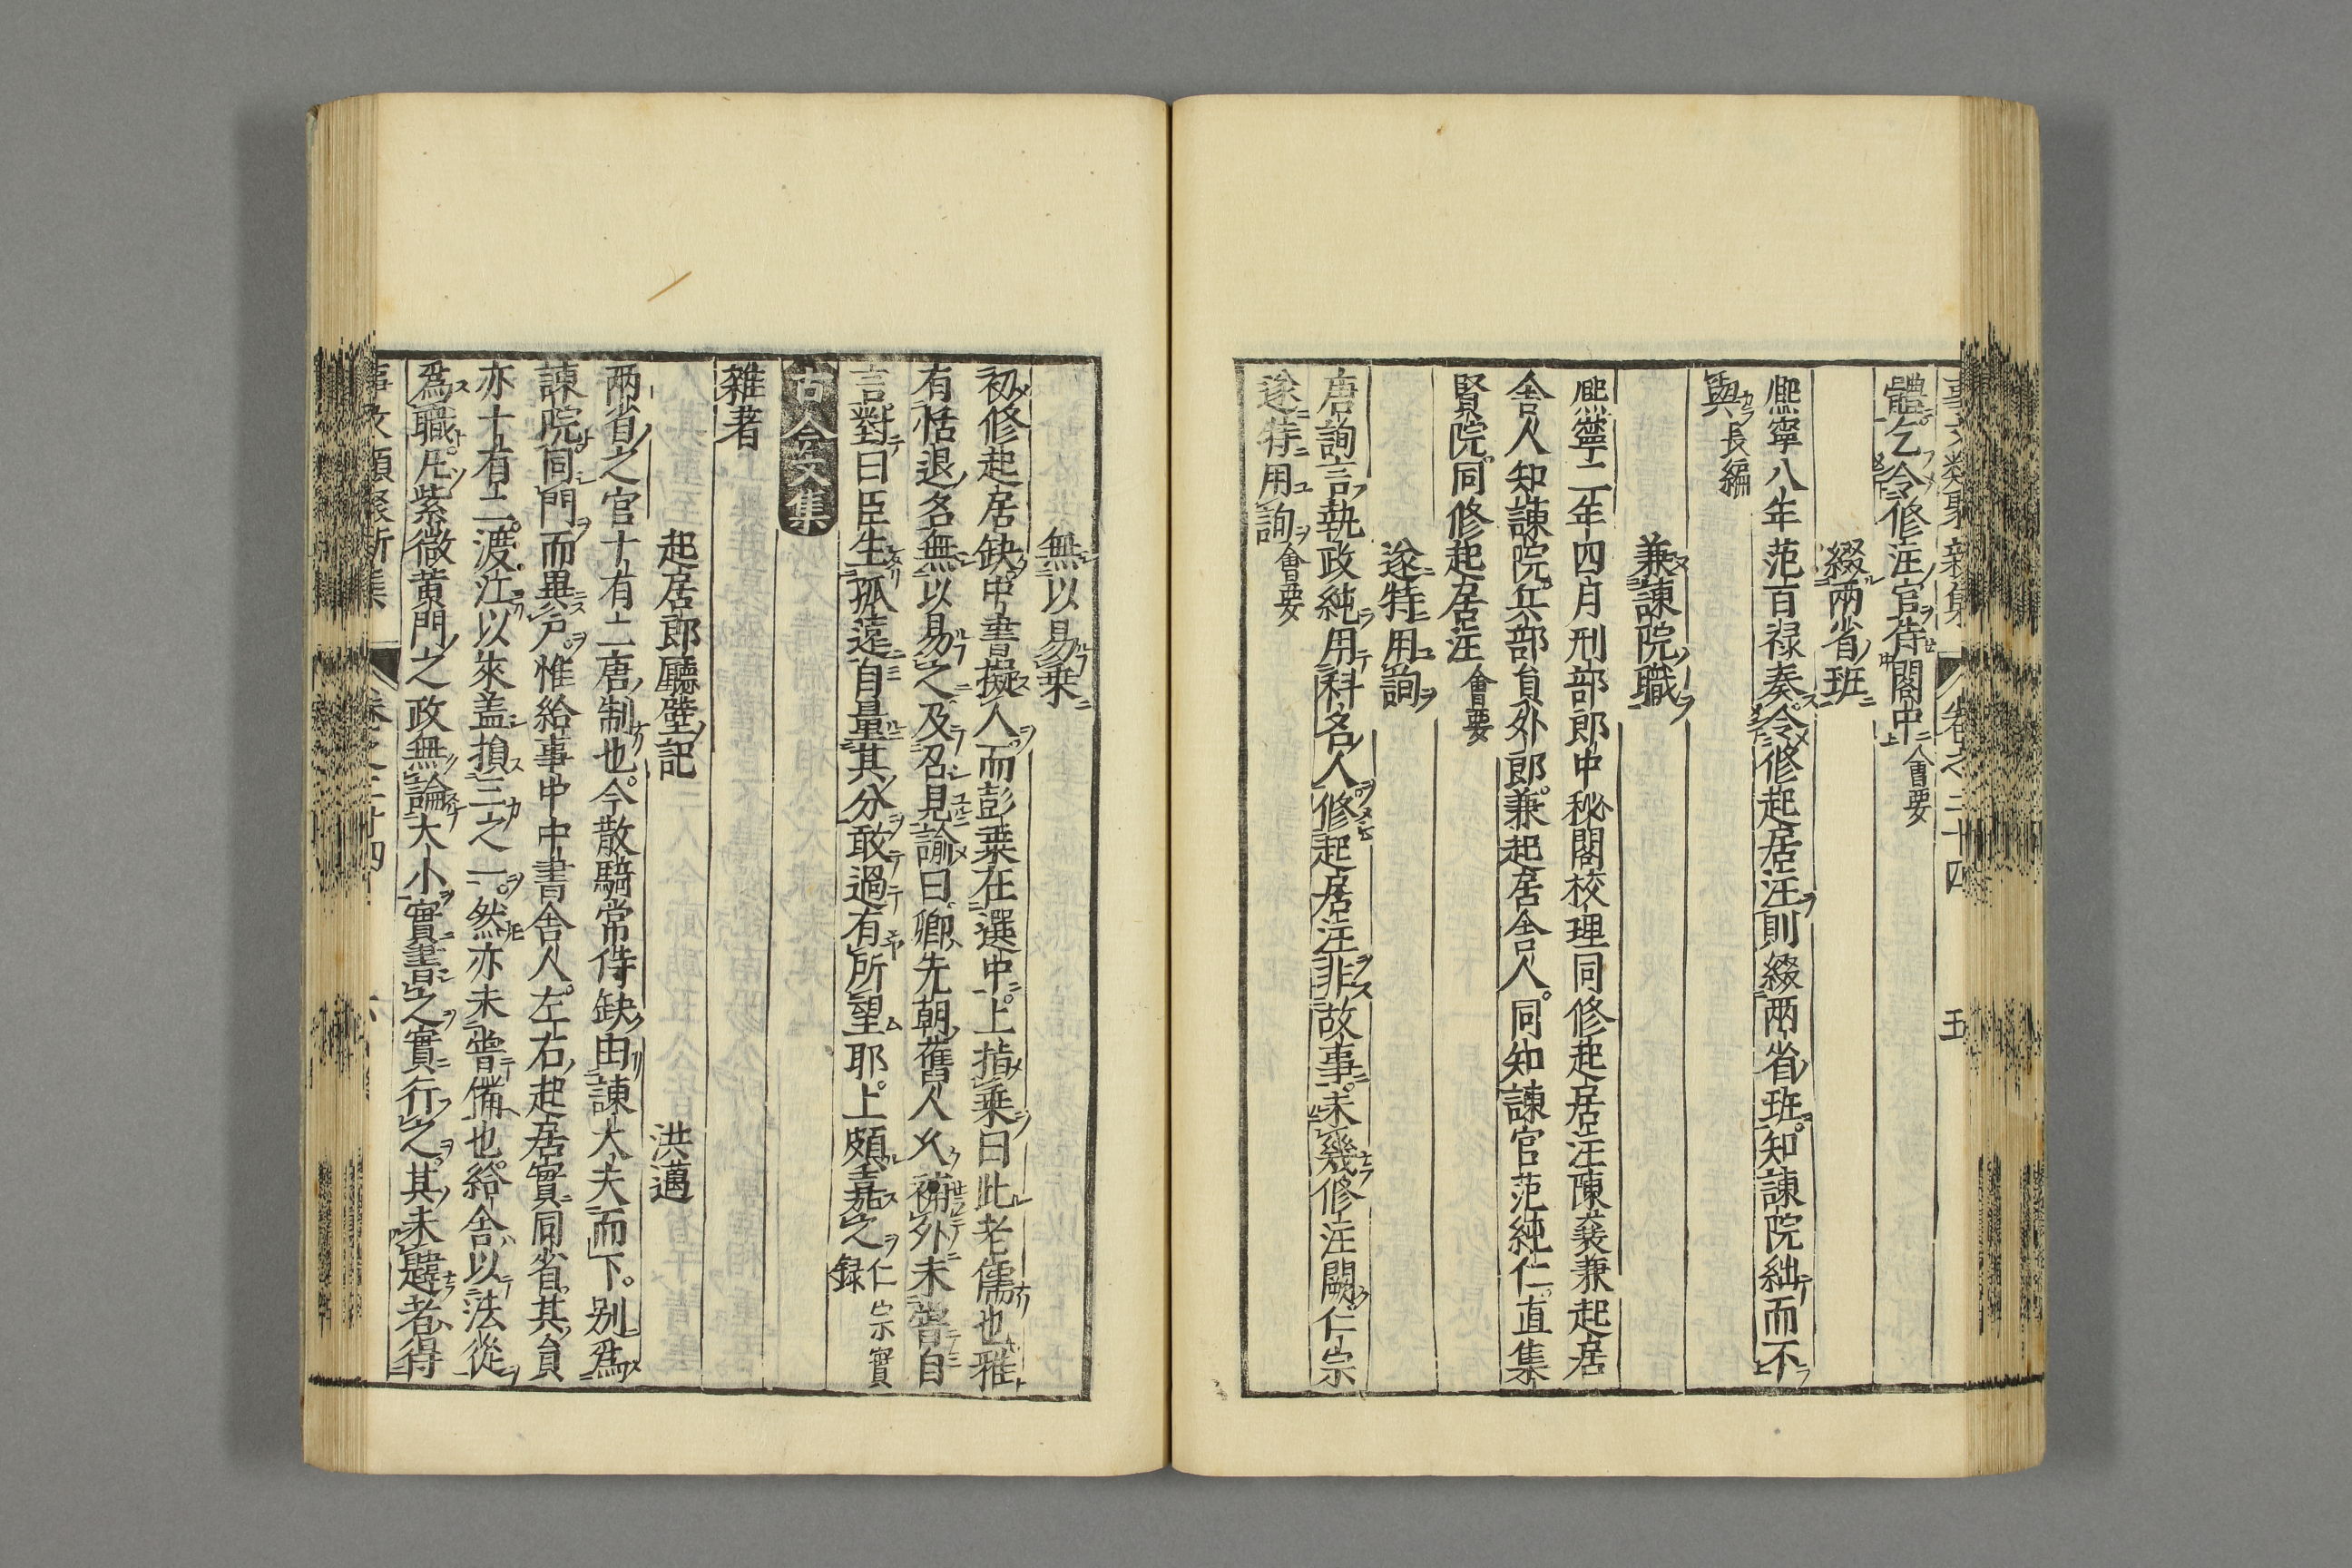 事文類聚新集 卷之三十四 五
體乞令修注官侍閣中會要
綴兩省班
熈寧八年范百禄奏令修起居注則綴两省班知諫院絀而不
與長編
兼諫院職
熈寧二年四月刑部郎中秘閣校理同修起居注陳襄兼起居
舎人知諫院兵部負外郎兼起居舎人同知諫官范純仁直集
賢院同修起居注會要
遂特用詢
唐詢言執政純用科名人修起居注非故事未幾修注闕仁宗
遂特用詢會要
無以易乗
初修起居缺中書擬人而彭乗在選中上指乗曰此老儒也雅
有恬退名無以易之及召見諭曰卿先朝舊人久補外未嘗自
言對曰臣生孤遠自量其分敢過有所望耶上頗嘉之仁宗實録
古今文集
雜著
起居郎廳壁記 洪邁
两省之官十有二唐制也今散騎常侍缺由諫大夫而下别爲
諫院同門而異户惟給事中中書舎人左右起居實同省其負
亦十有二渡江以來盖損三之一然亦未嘗備也給舎以法從
爲職凡紫微黄門之政無論大小實書之實行之其未韙者得